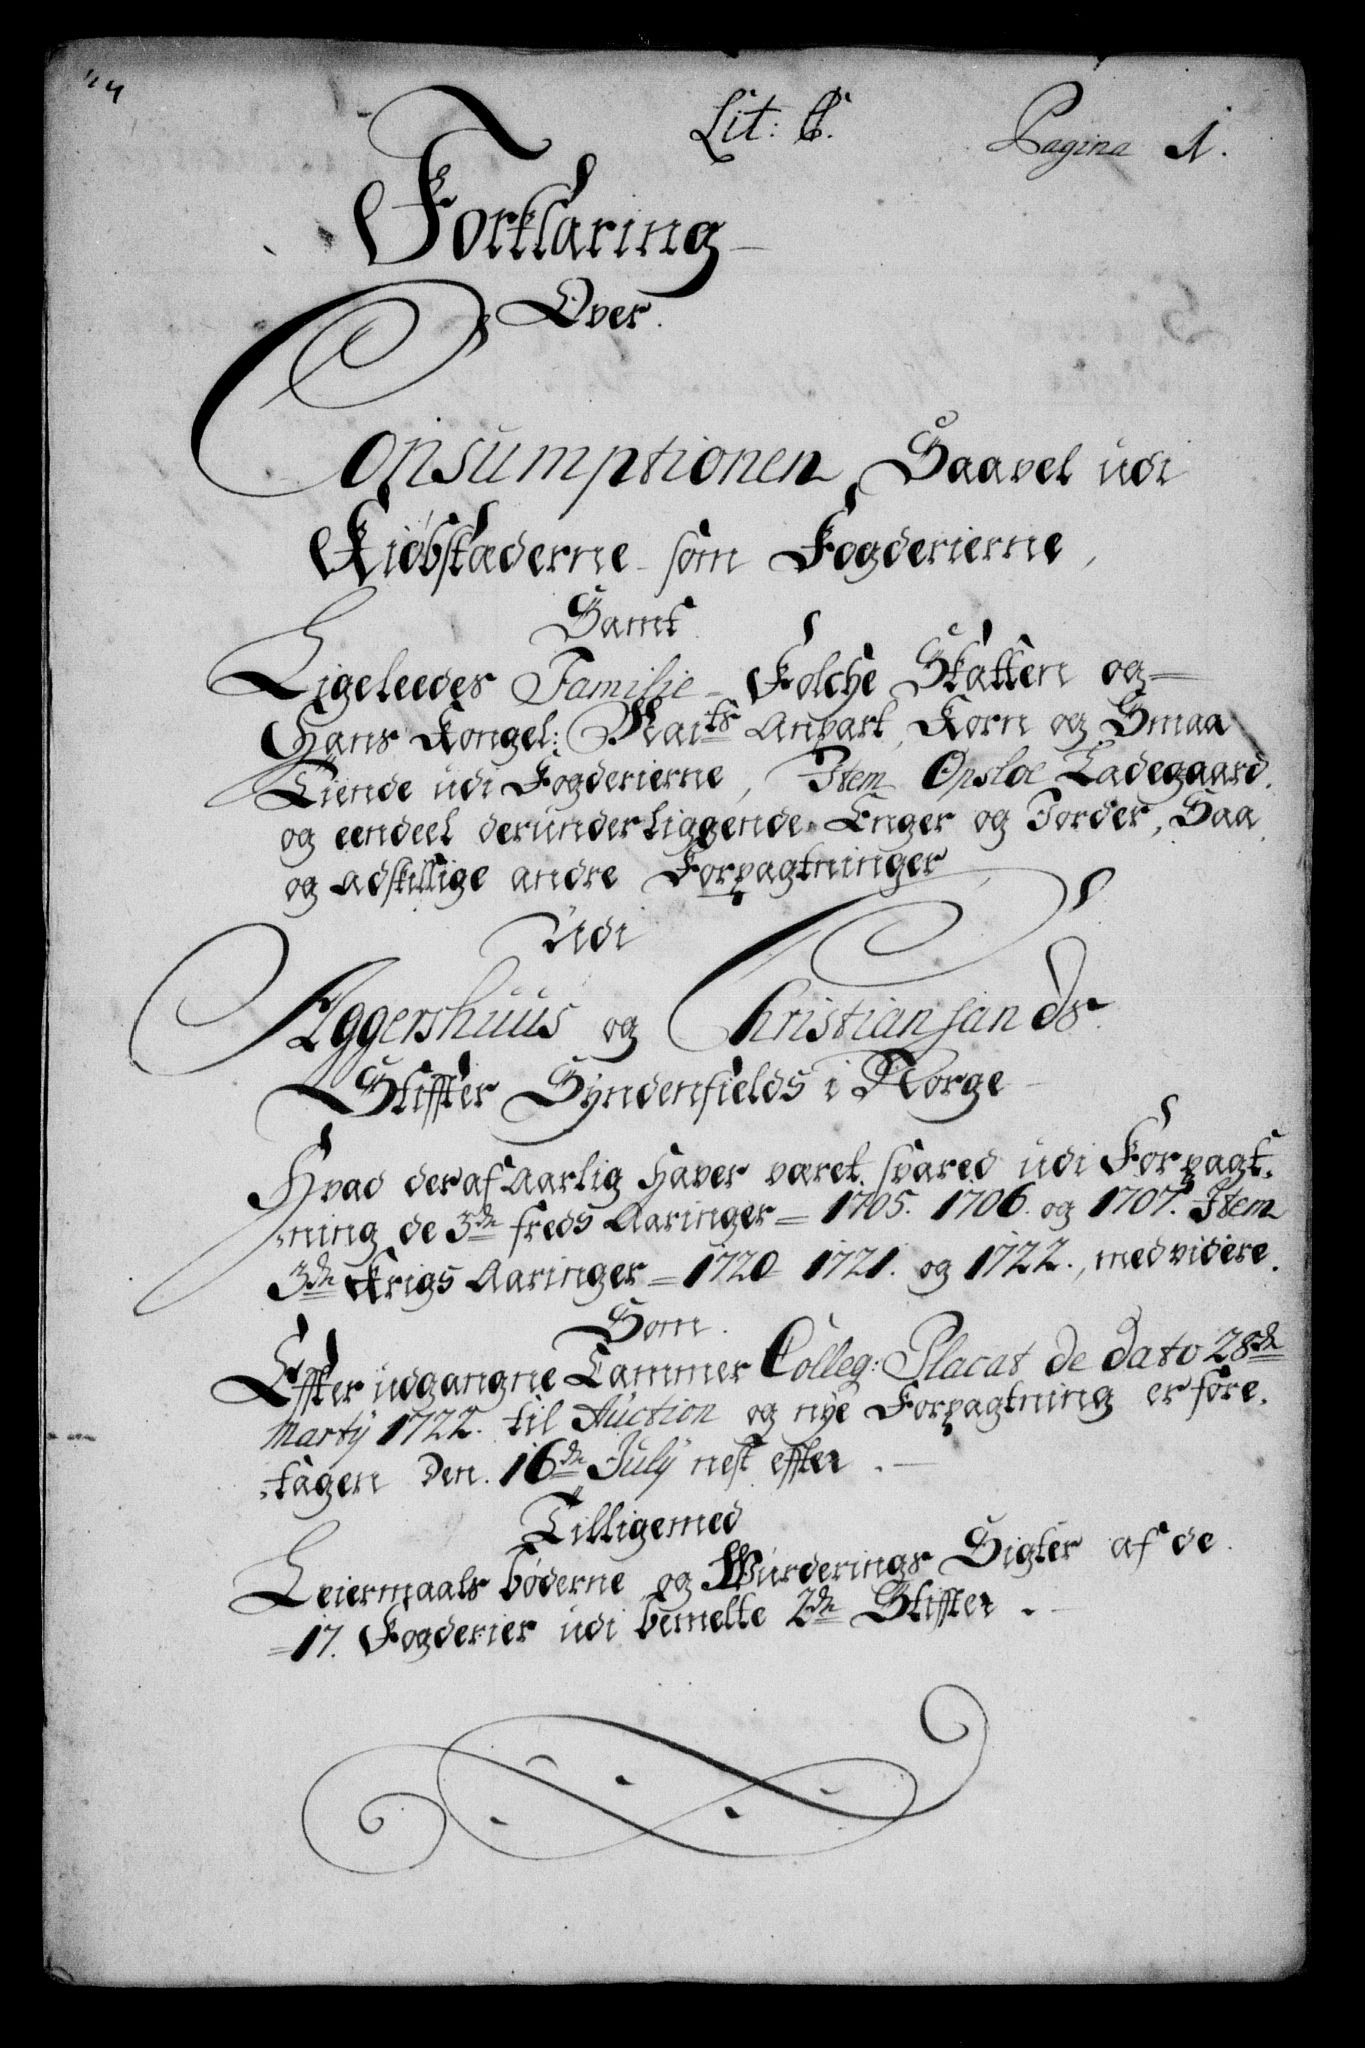 Lit: C. Pagina 1.
Forklaring
Over.
Consumptionen, Saavel udi
Kiøbstæderne som Fogderierne,
Samt
Ligeleedes Familie- Folche Skatten og
Hans Kongel: Maits Anpart, Korn og Smaa
Tiende udi Fogderierne, Item Opsloe Ladegaard.
og eendeel derunder liggende Enger og Jorder, Saa
og adskillige andre Forpagtninger
Udi
Aggershuus og Christiansands
Stiffter Syndenfields i Norge
Hvad deraf Aarlig haver været svared udi Forpagt-
ning de 3de freds Aaringer = 1705. 1706. og 1707. Item
3de Krigs Aaringer = 1720 1721. og 1722., med videre.
Som.
Effter udgangne Cammer Colleg: Placat de dato 28de
Marty 1722. til Auction og nye Forpagtning er fore-
tagen den. 16de July nest effter.
Tilligemed
Leiermaals bøderne og Wurderings Sigter af de
=17. Fogderier udi bemelte 2de Stiffter.